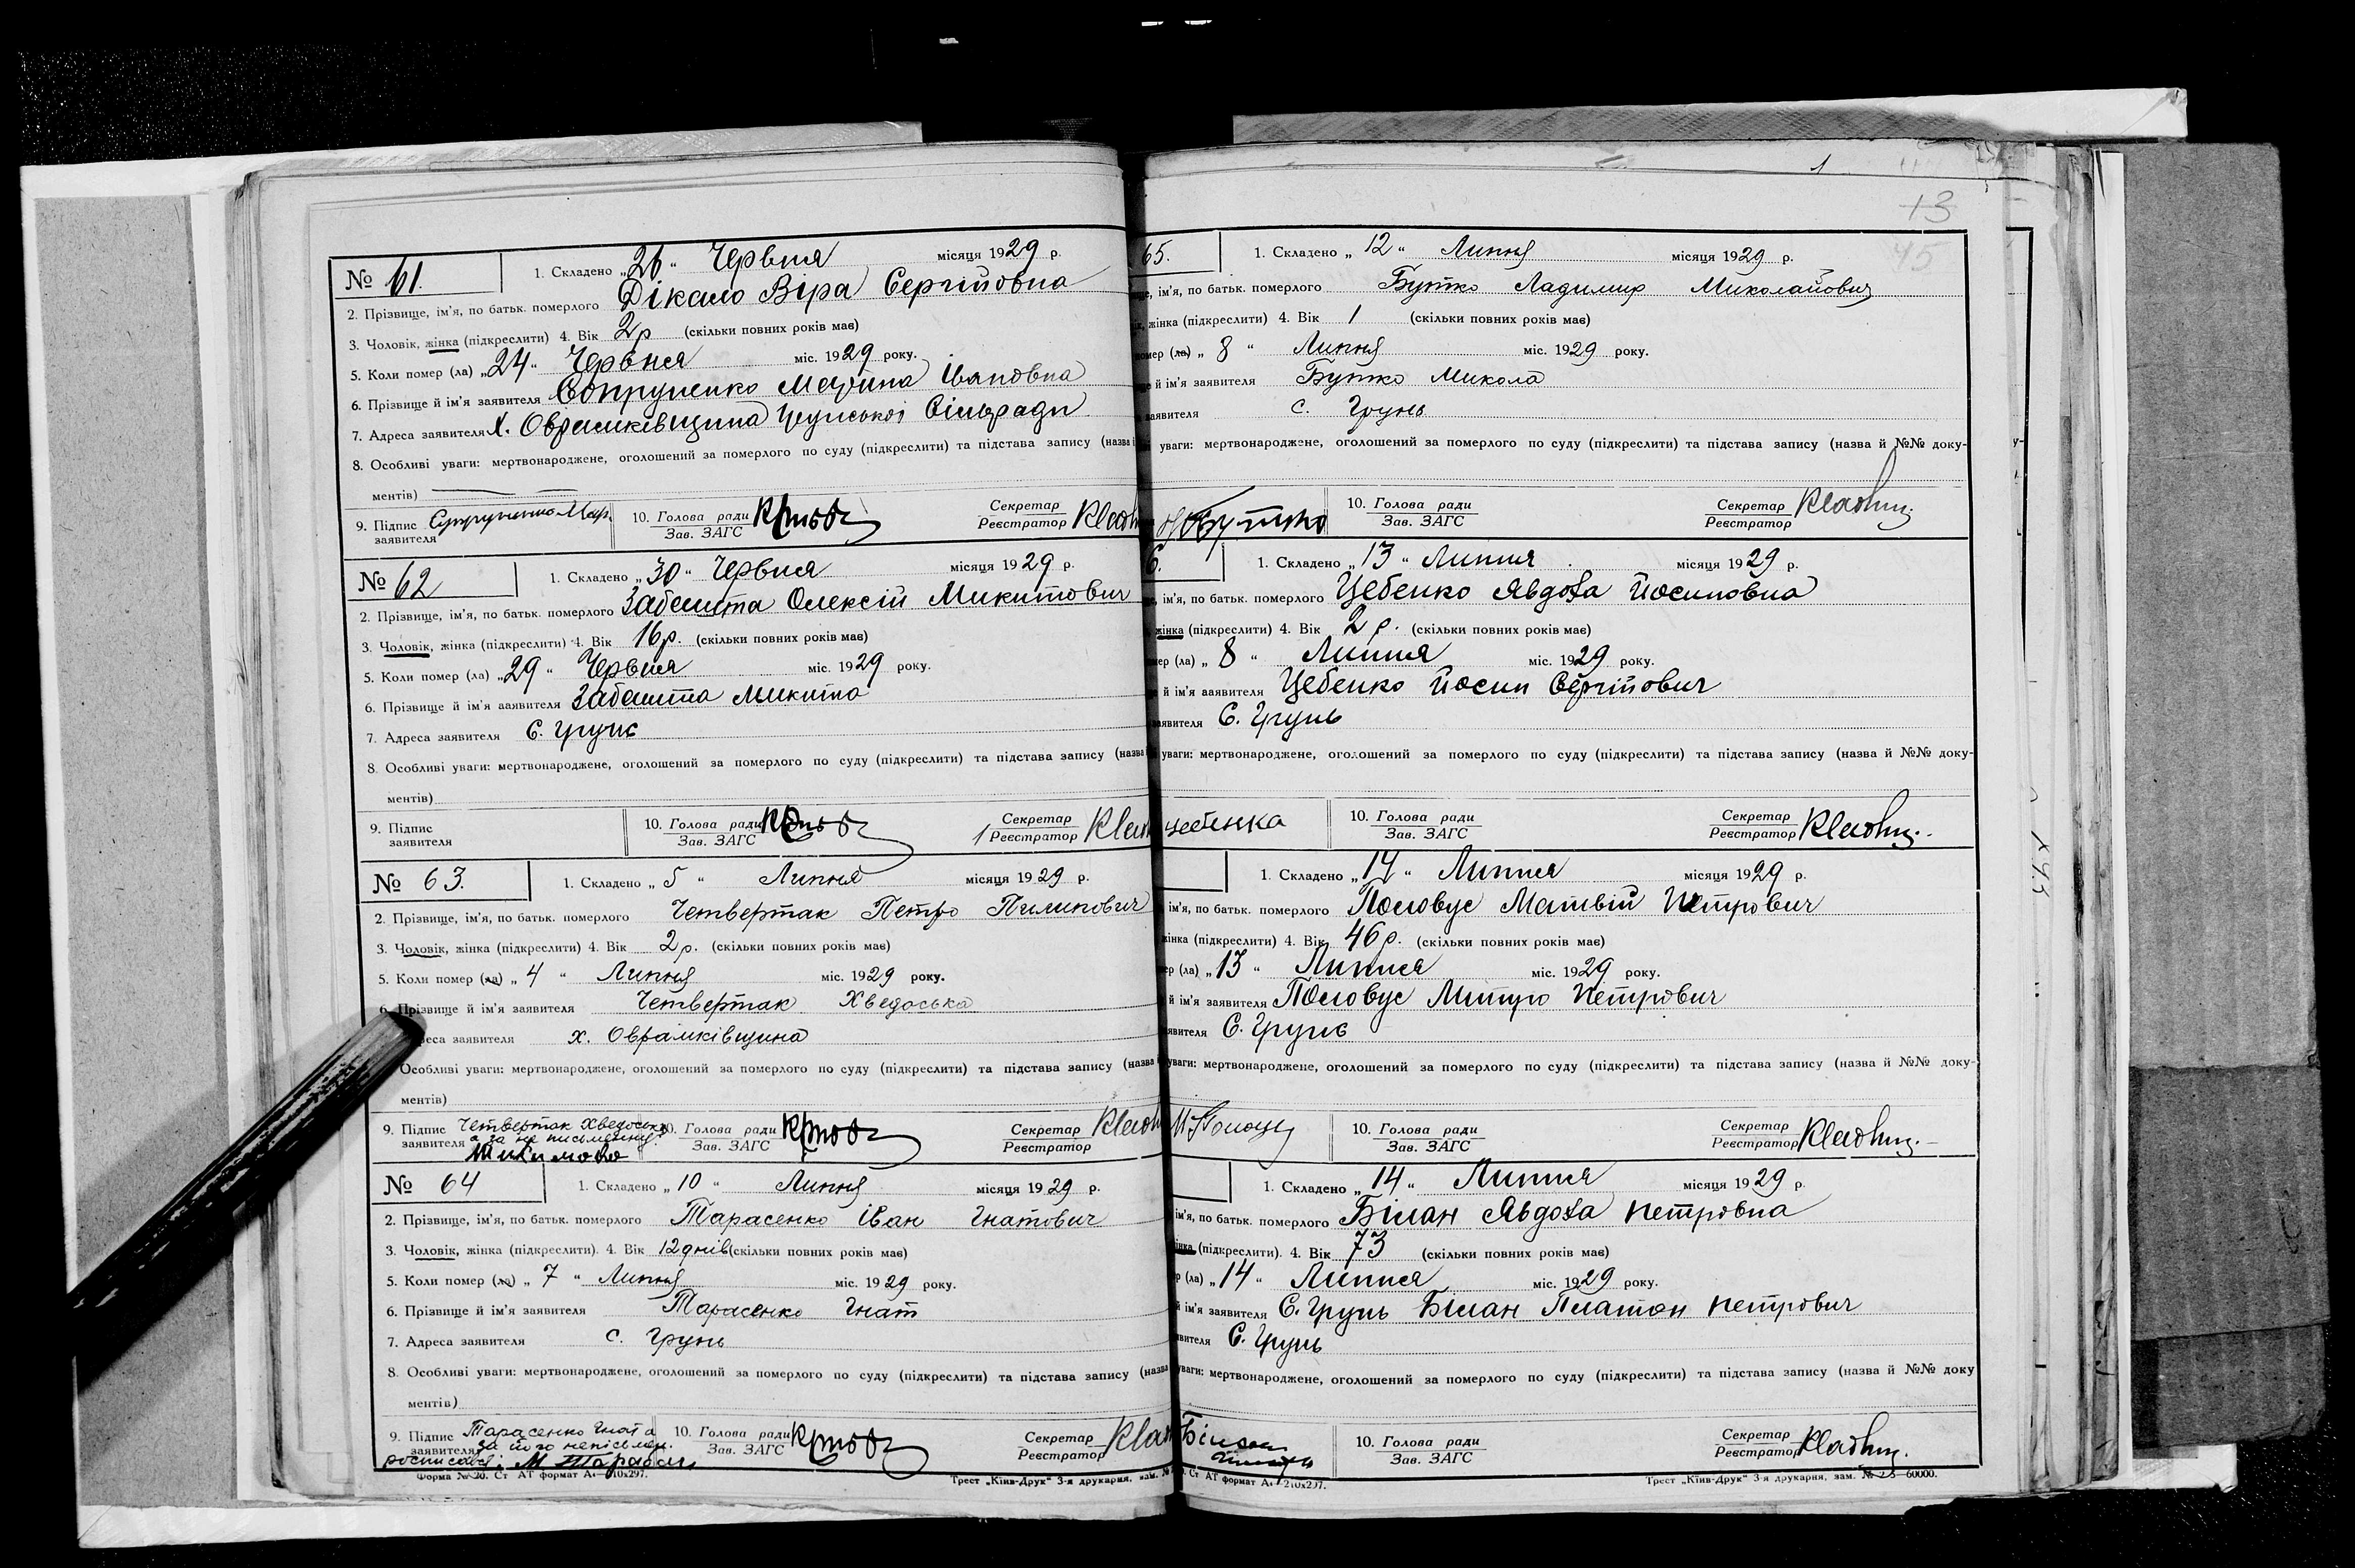 № 61. 1. Складено „26“ Червня місяця 1929 р.
2. Прізвище, ім'я, по батьк. померлого Дікало Віра Сергійовна
3. Чоловік, жінка (підкреслити) 4. Вік 2р (скільки повних років має)
5. Коли помер (ла) „24“ Червня міс. 1929 року.
6. Прізвище й ім'я заявителя Супруненко Марина Івановна
7. Адреса заявителя х. Оврамківщина Грунської Сільради
8. Особливі уваги: мертвонароджене, оголошений за померлого по суду (підкреслити) та підстава запису (назва
ментів)
9. Підпис заявителя Супруненко Мар. 10. Голова ради Зав. ЗАГС Секретар Реєстратор
№ 62 1. Складено „30“ Червня місяця 1929 р.
2. Прізвище, ім'я, по батьк. померлого Забашта Олексій Микитович
3. Чоловік, жінка (підкреслити) 4. Вік 16р. (скільки повних років має)
5. Коли помер (ла) „29“ Червня міс. 1929 року.
6. Прізвище й ім'я заявителя Забашта Микита
7. Адреса заявителя С. Грунь
8. Особливі уваги: мертвонароджене, оголошений за померлого по суду (підкреслити) та підстава запису (назва
ментів)
9. Підпис заявителя 10. Голова ради Зав. ЗАГС Секретар Реєстратор
№ 63. 1. Складено „5“ Липня місяця 1929 р.
2. Прізвище, ім'я, по батьк. померлого Четвертак Петро Пилипович
3. Чоловік, жінка (підкреслити) 4. Вік 2р. (скільки повних років має)
5. Коли помер (ла) „4“ Липня міс. 1929 року.
6. Прізвище й ім'я заявителя Четвертак Хведоська
реса заявителя х. Оврамківщина
Особливі уваги: мертвонароджене, оголошений за померлого по суду (підкреслити) та підстава запису (назва
ментів)
9. Підпис заявителя Четвертак Хведоська а за не письменну 10. Голова ради Зав. ЗАГС Секретар Реєстратор
№ 64 1. Складено „10“ Липня місяця 1929 р.
2. Прізвище, ім'я, по батьк. померлого Тарасенко Іван Гнатович
3. Чоловік, жінка (підкреслити). 4. Вік 12 днів (скільки повних років має)
5. Коли помер (ла) „7“ Липня міс. 1929 року.
6. Прізвище й ім'я заявителя Тарасенко Гнат
7. Адреса заявителя с. Грунь
8. Особливі уваги: мертвонароджене, оголошений за померлого по суду (підкреслити) та підстава запису (назва
ментів)
9. Підпис заявителя Тарасенко Гнат а за його неписьмен. росписався: М Тарасен 10. Голова ради Зав. ЗАГС Секретар Реєстратор
Форма № 20. Ст АТ формат А4—210х297. Трест „Київ-Друк“ 3-я друкарня, зам. №
13
45
65. 1. Складено „12“ Липня місяця 1929 р.
ім'я, по батьк. померлого Бутко Ладимир Миколайович
жінка (підкреслити) 4. Вік 1 (скільки повних років має)
помер (ла) „8“ Липня міс. 1929 року.
й ім'я заявителя Бутко Микола
заявителя с. Грунь
уваги: мертвонароджене, оголошений за померлого по суду (підкреслити) та підстава запису (назва й №№ доку-
Бутко 10. Голова ради Зав. ЗАГС Секретар Реєстратор
6. 1. Складено „13“ Липня місяця 1929 р.
ім'я, по батьк. померлого Цебенко Явдоха Йосиповна
жінка (підкреслити) 4. Вік 2р. (скільки повних років має)
мер (ла) „8“ Липня міс. 1929 року.
й ім'я заявителя Цебенко Йосип Сергійович
заявителя С. Грунь
уваги: мертвонароджене, оголошений за померлого по суду (підкреслити) та підстава запису (назва й №№ доку-
цебенка 10. Голова ради Зав. ЗАГС Секретар Реєстратор
1. Складено „14“ Липня місяця 1929 р.
ім'я, по батьк. померлого Половус Матвій Петрович
жінка (підкреслити) 4. Вік 46р. (скільки повних років має)
ер (ла) „13“ Липня міс. 1929 року.
й ім'я заявителя Половус Митро Петрович
явителя С. Грунь
уваги: мертвонароджене, оголошений за померлого по суду (підкреслити) та підстава запису (назва й №№ доку-
10. Голова ради Зав. ЗАГС Секретар Реєстратор
1. Складено „14“ Липня місяця 1929 р.
ім'я, по батьк. померлого Білан Явдоха Петровна
жінка (підкреслити). 4. Вік 73 (скільки повних років має)
р (ла) „14“ Липня міс. 1929 року.
й ім'я заявителя С. Грунь Білан Платон Петрович
явителя С. Грунь
уваги: мертвонароджене, оголошений за померлого по суду (підкреслити) та підстава запису (назва й №№ доку
Білан 10. Голова ради Зав. ЗАГС Секретар Реєстратор
Ст. АТ формат А4—210х297. Трест „Київ-Друк“ 3-я друкарня, зам. 60000.